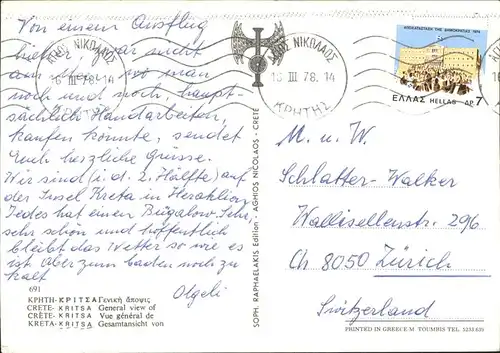 Von einem Ausflug
hierher zwar nicht
aus wo man
noch und noch, haupt-
sächlich Handarbeiten,
kaufen könnte, sendet
Euch herzliche Grüsse.
Wir sind (i.d. 2. Hälfte) auf
der Insel Kreta in Heraklion
Jedes hat einen Bugalow. Sehr,
sehr schön und hoffentlich
bleibt das Wetter so wie es
ist. Aber zum baden noch zu
kalt
Olgeli
691
ΚΡΗΤΗ-ΚΡΙΤΣΑ Γενική άποψις
CRETE-KRITSA General view of
CRÈTE-KRITSA Vue général de
KRETA-KRITSA Gesamtansicht von
SOPH. RAPHAELAKIS Edition - AGHIOS NICOLAOS - CRETE
ΑΓΙΟΣ ΝΙΚΟΛΑΟΣ
16 III 78. 14
ΑΓΙΟΣ ΝΙΚΟΛΑΟΣ
16 III 78. 14
ΚΡΗΤΗΣ
ΑΠΟΚΑΤΑΣΤΑΣΗ ΤΗΣ ΔΗΜΟΚΡΑΤΙΑΣ 1974
ΕΛΛΑΣ HELLAS ΔΡ. 7
M. u. W.
Schlatter-Walker
Wallisellenstr. 296
Ch 8050 Zürich
Switzerland
PRINTED IN GREECE-M TOUMBIS TEL. 5233.635